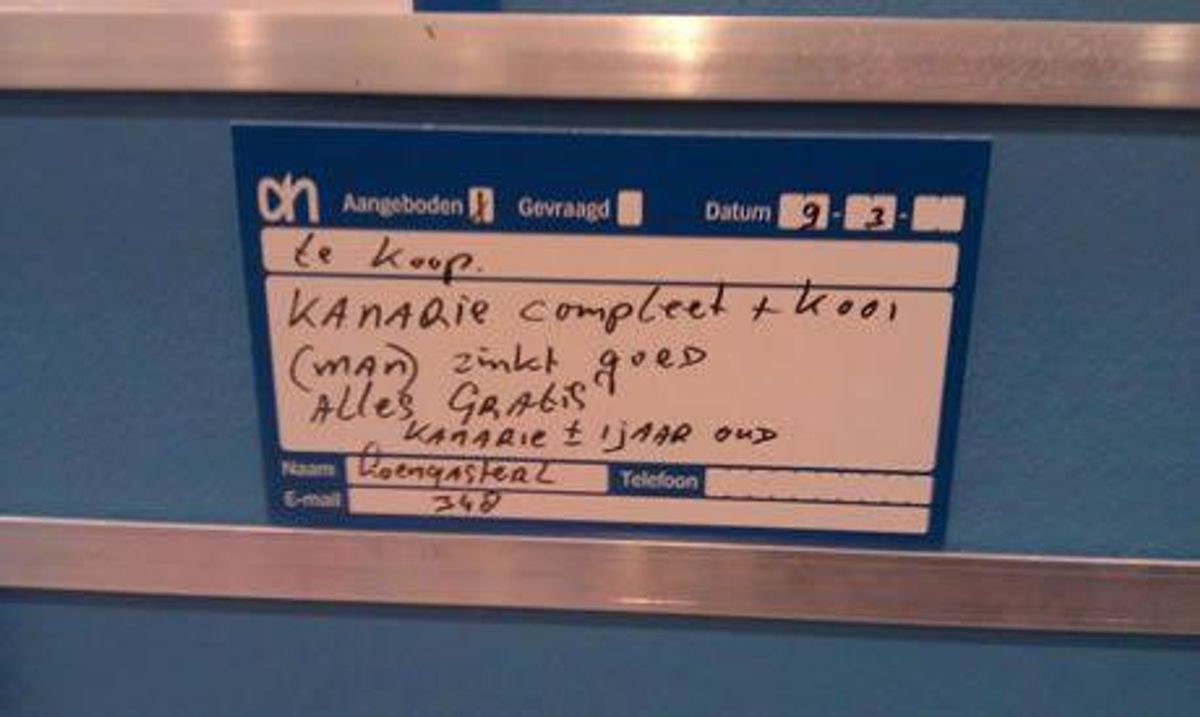 ah Aangeboden Gevraagd Datum 9-3-
te koop.
KANARIE compleet + kooi
(MAN) zinkt goed
Alles GRATIS
KANARIE ± 1 jAAR OUD
Naam Telefoon
E-mail 348